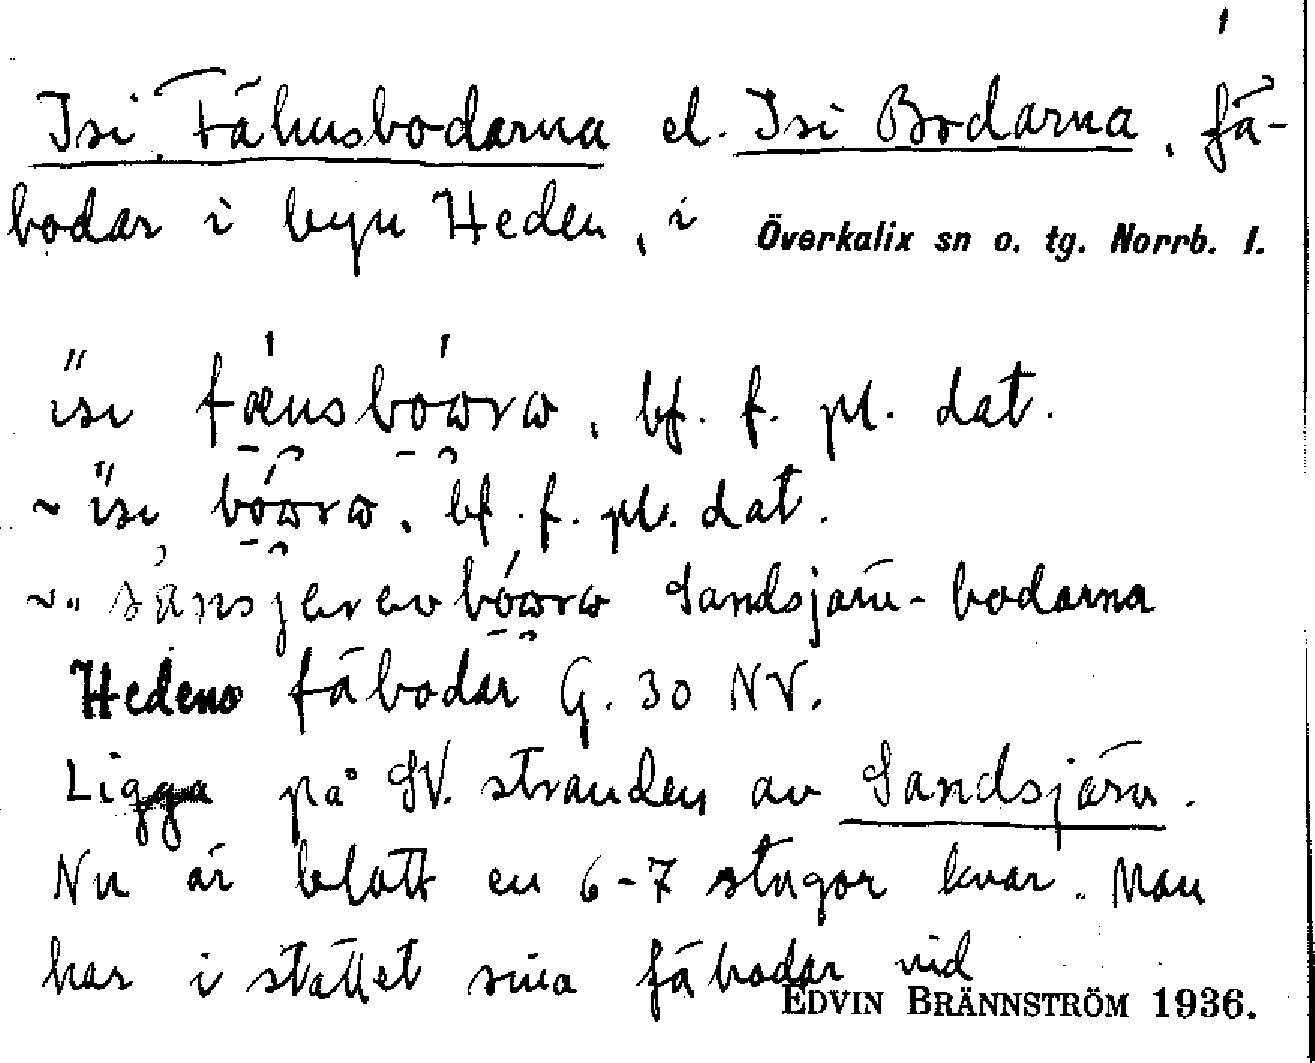 Isi Fähusbodarna el. Isi Bodarna, fä-
bodar i byn Heden, i Överkalix sn o. tg. Norrb. l.
ísi bf. f. pl. dat.
~ ísi bf. f. pl. dat.
~ Sandsjärv-bodarna
Hedens fäbodar G. 30 NV.
Ligga på SV. stranden av Sandsjärv.
Nu är blott en 6-7 stugor kvar. Man
har i stället sina fäbodar vid
EDVIN BRÄNNSTRÖM 1936.